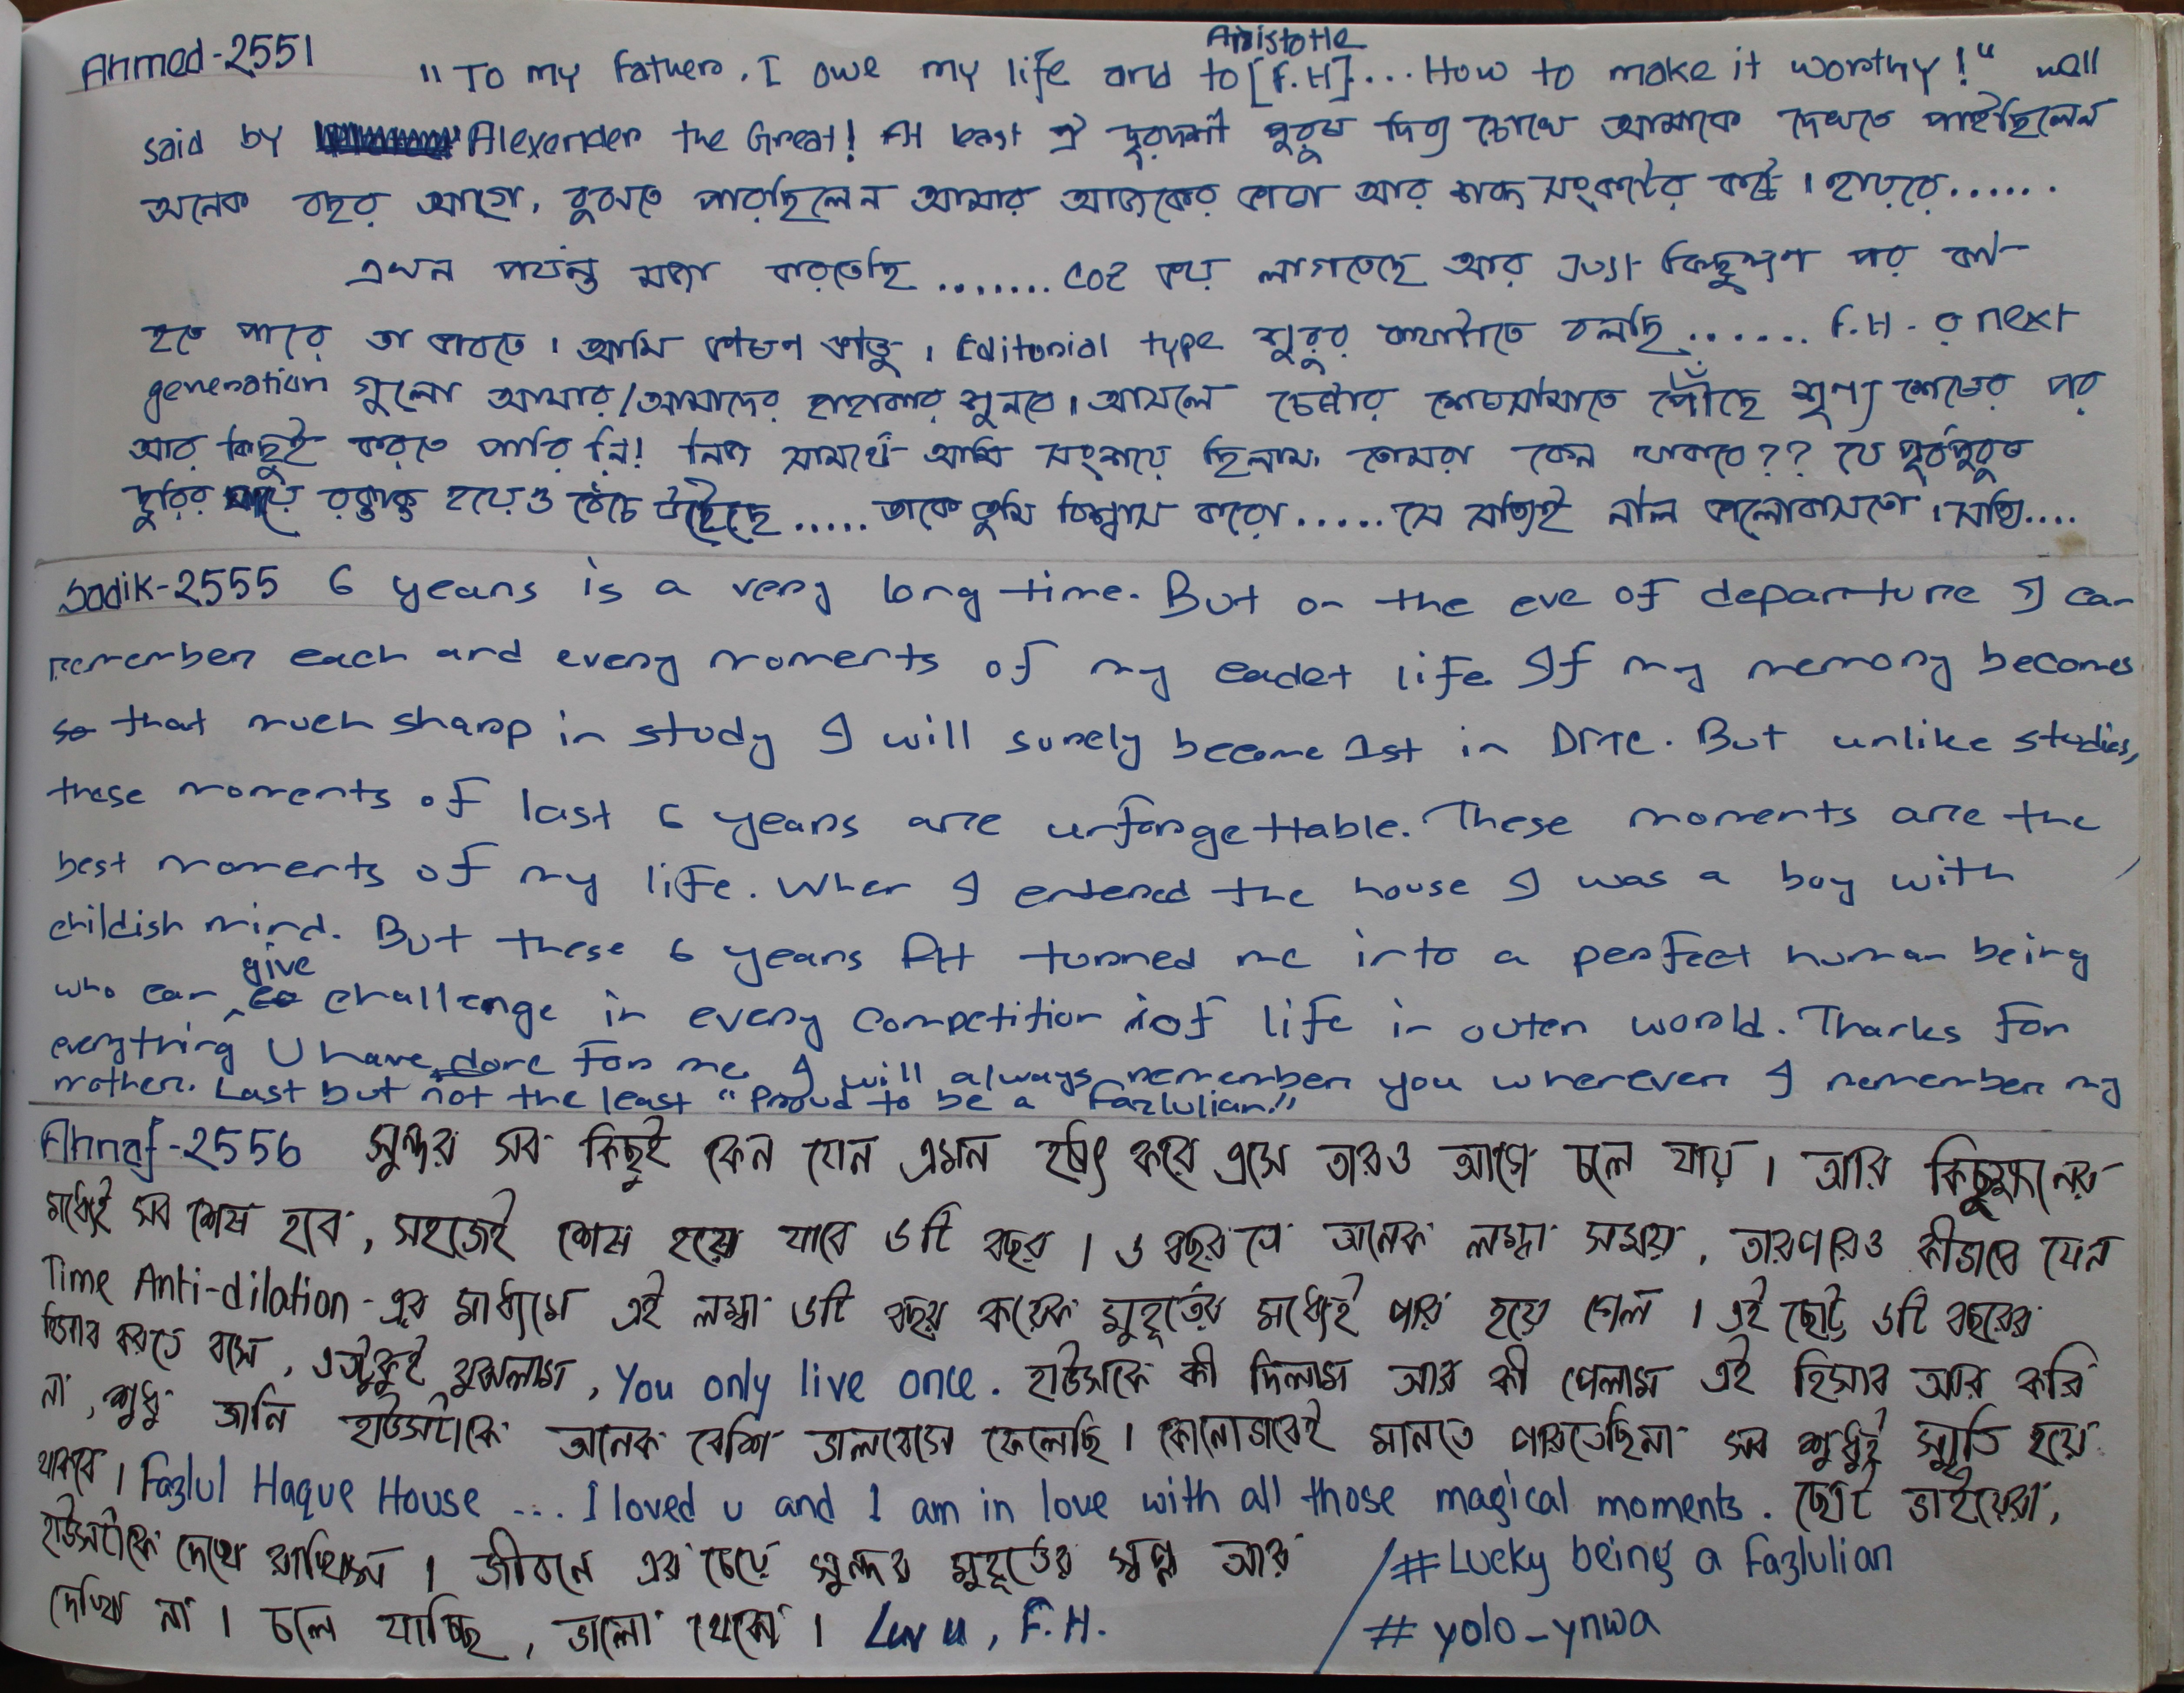 Ahmed-2551
Aristotle
"To my father, I owe my life and to [F.H]....How to make it worthy!" well
said by Alexender the Great! At least ঐ দূরদর্শী পুরুষ দিব্য চোখে আমাকে দেখতে পাইছিলেন
অনেক বছর আগে, বুঝতে পারছিলেন আমার আজকের কাচা আর শব্দ সংকটের কষ্ট। হায়রে......
এখন পর্যন্ত মজা করতেছি ....... coz ভয় লাগতেছে আর just কিছুক্ষণ পর কী
হতে পারে তা ভাবতে। আমি ভীষণ ভীতু। Editorial type শুরুর কথাটাতে বলছি....... F.H. র next
generation গুলো আমার/আমাদের হাহাকার শুনবে। আসলে চেষ্টার শেষসীমাতে পৌঁছে শূণ্য শেষের পর
আর কিছুই করতে পারি নি! নিজ সামর্থে আমি সংশয়ে ছিলাম, তোমরা কেন থাকবে?? যে পূর্বপুরুষ
ছুরির ঘায়ে রক্তাক্ত হয়েও বেঁচে উঠেছে.....তাকে তুমি বিশ্বাস করো......সে সত্যিই নীল ভালোবাসতো। সত্যি....
Sadik-2555 6 years is a very long time. But on the eve of departure I can
remember each and every moments of my cadet life If my memory becomes
so that much sharp in study I will surely become 1st in DMC. But unlike studies,
these moments of last 6 years are unforgettable. These moments are the
best moments of my life. When I entered the house I was a boy with
childish mind. But these 6 years FH turned me into a perfect human being
who can give challenge in every competition of life in outer world. Thanks for
everything U have done for me I will always remember you wherever I remember my
mother. Last but not the least "Proud to be a Fazlulian."
Ahnaf-2556 সুন্দর সব কিছুই কেন যেন এমন হঠাৎ করে এসে তারও আগে চলে যায়। আর কিছুক্ষনের
মধ্যেই সব শেষ হবে, সহজেই শেষ হয়ে যাবে ৬টি বছর। ৬ বছর যে অনেক লম্বা সময়, তারপরেও কীভাবে যেন
Time Anti-dilation-এর মাধ্যমে এই লম্বা ৬টি বছর কয়েক মুহূর্তের মধ্যেই পার হয়ে গেল। এই ছোট্ট ৬টি বছরের
হিসাব করতে বসে, এতটুকুই বুঝলাম, You only live once. হাউসকে কী দিলাম আর কী পেলাম এই হিসাব আর করি
না, শুধু জানি হাউসটাকে অনেক বেশি ভালবেসে ফেলেছি। কোনোভাবেই মানতে পারতেছিনা সব শুধুই স্মৃতি হয়ে
থাকবে। Fazlul Haque House .... I loved u and I am in love with all those magical moments. ছোট ভাইয়েরা,
হাউসটাকে দেখে রাখিস। জীবনে এর চেয়ে সুন্দর মুহূর্তের স্বপ্ন আর
দেখি না। চলে যাচ্ছি, ভালো থেকো। Luv u, F.H.
# Lucky being a Fazlulian
# yolo_ynwa